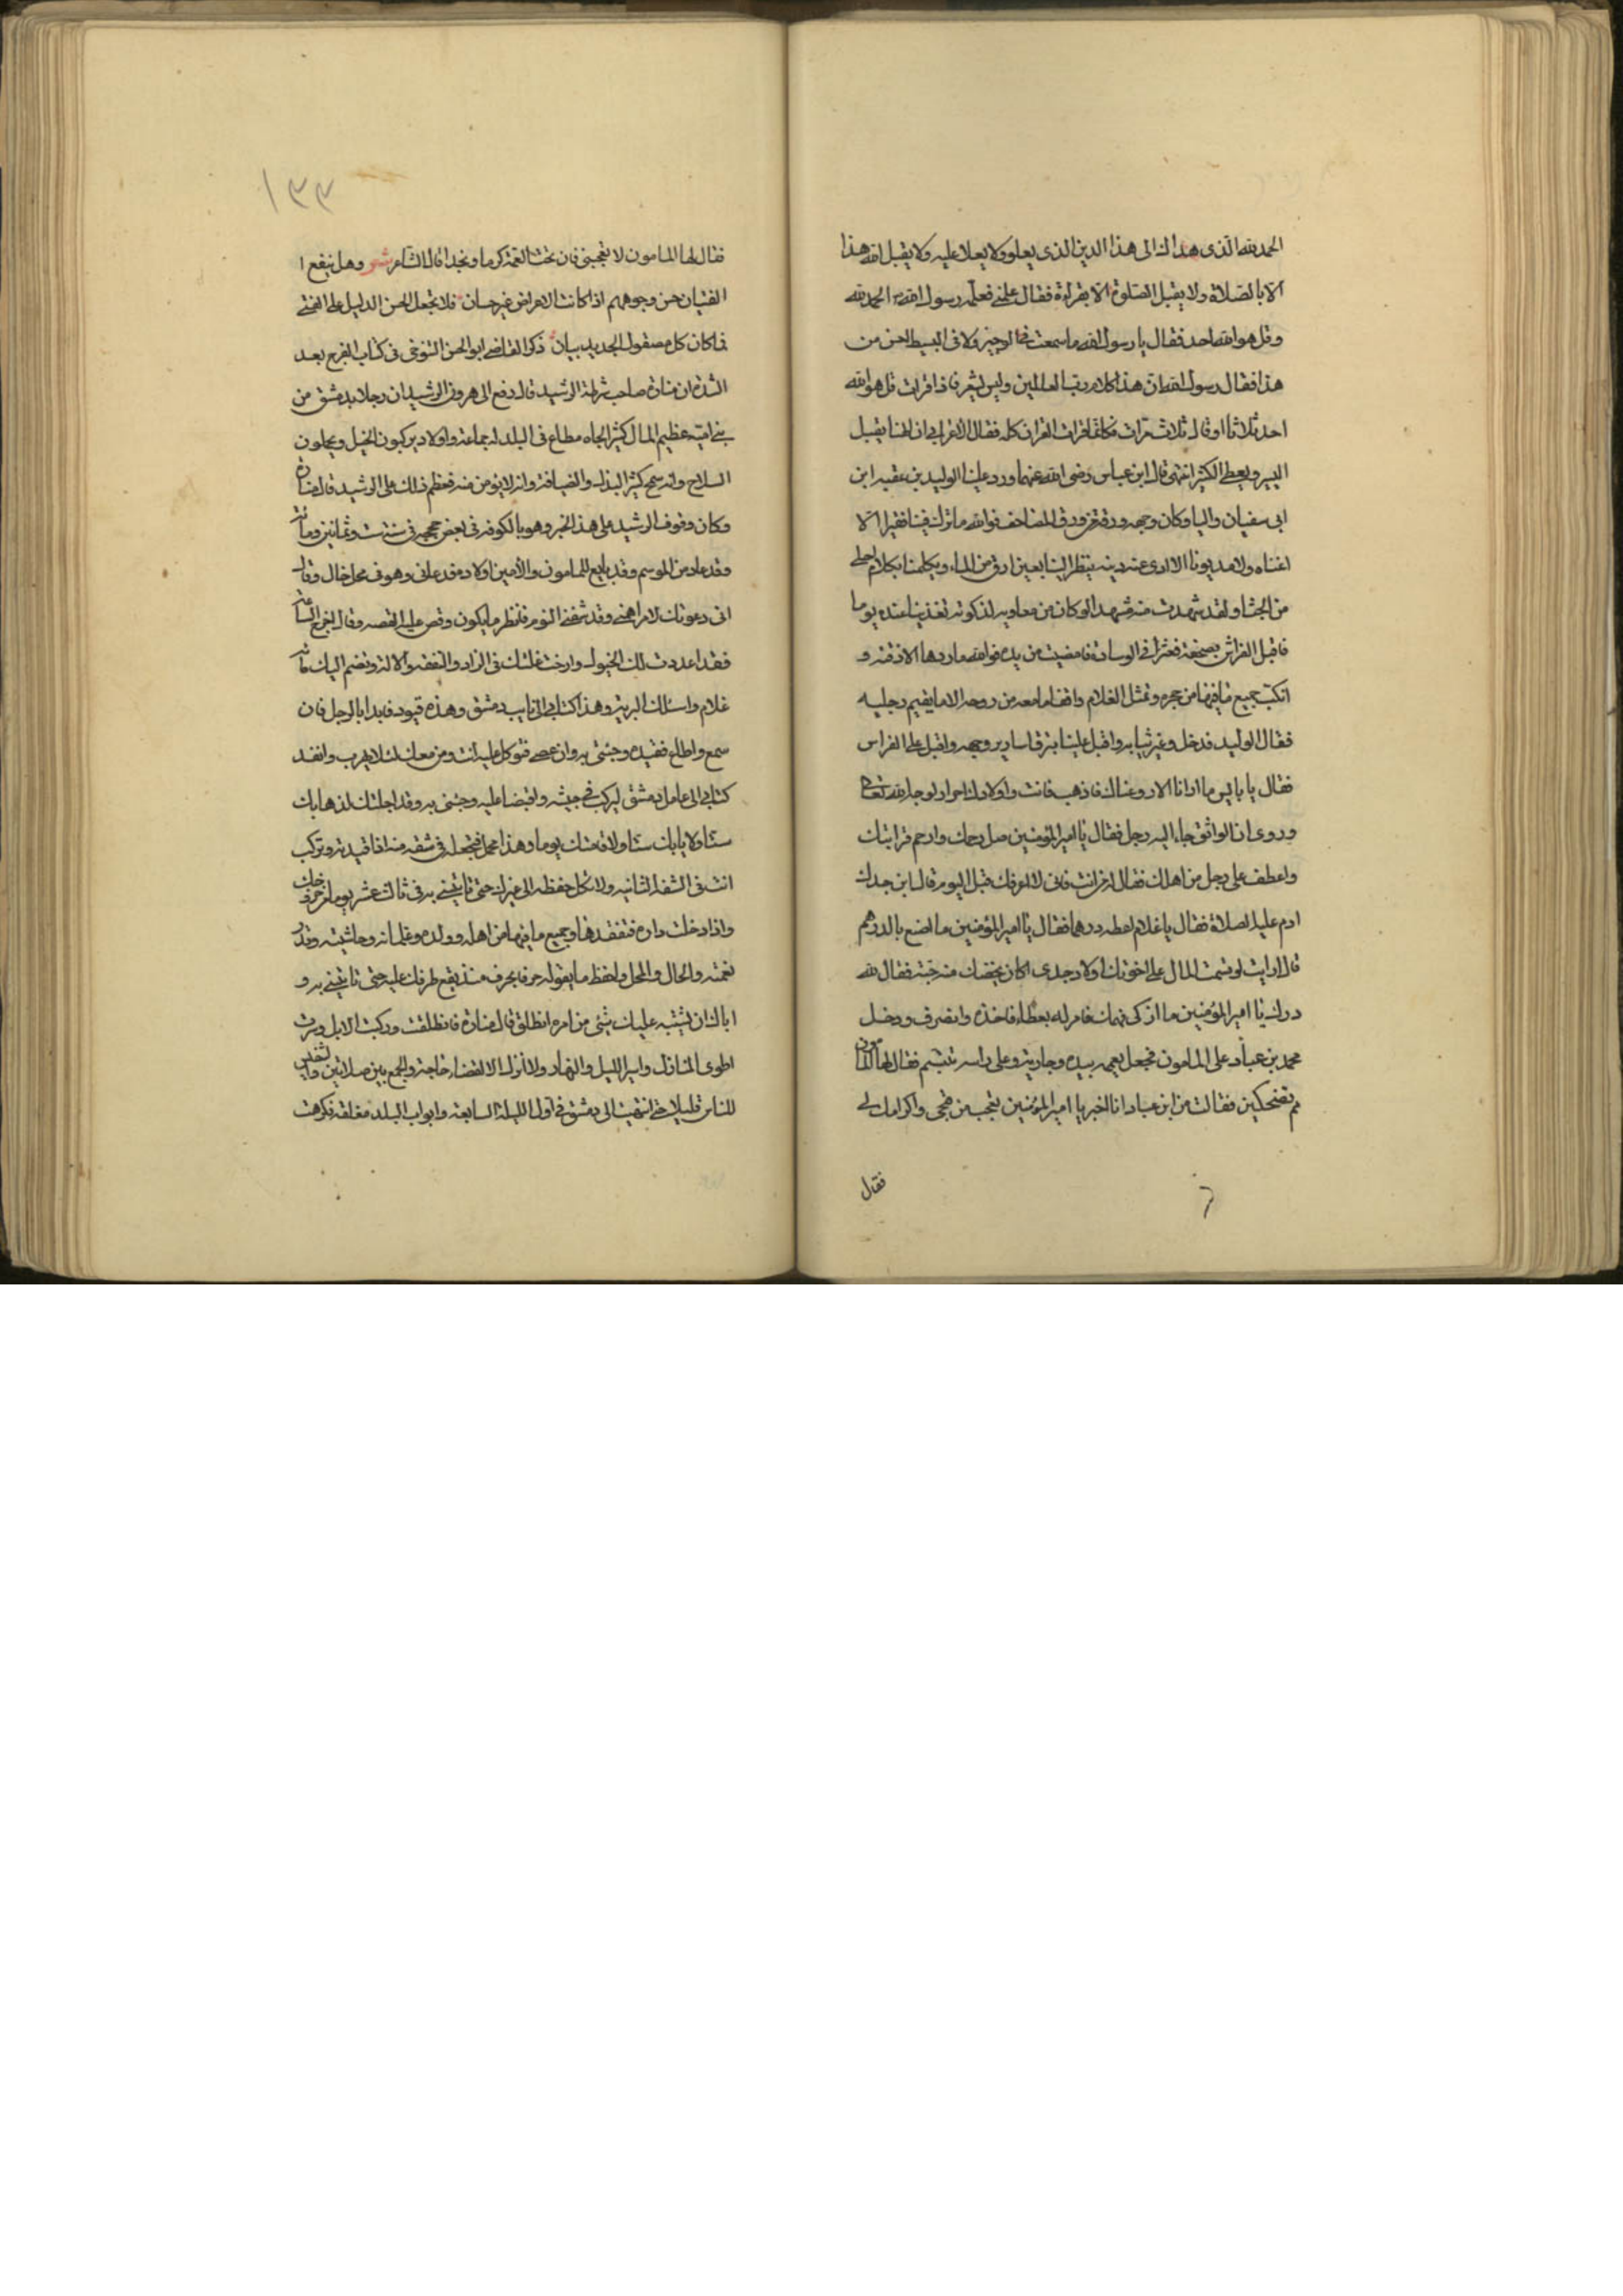 الحمد لله الذى هداك الى هذا الدين الذى يعلو ولا يعلا عليه ولا يقبل الله هذا
الا بالصلاة ولا يقبل الصلوة الا بقراءة فقال علمنى فعلمه رسول الله الحمد لله
وقل هو الله احد فقال يا رسول الله ما سمعت فى الوجيز ولا فى البسيط احسن من
هذا فقال رسول الله ان هذا كلام رب العالمين وليس بشعر فاذا قرات قل هو الله
احد ثلاثا او قال ثلاث مرات فكانما قرات القران كله فقال الاعرابى ان الهنا يقبل
اليسير ويعطى الكثير انتهى قال ابن عباس رضى الله عنهما ورد علينا الوليد بن عقبه ابن
ابى سفيان واليا وكان وجهه ورقة من ورق المصاحف فوالله ما ترك فينا فقيرا الا
اغناه ولا مديونا الا ادى عنه دينه ينظر الينا بعين ارق من الماء ويكلمنا بكلام احلى
من الجنا ولقد شهدت منه مشهدا لو كان من معاويه لذكرته تغدينا عنده يوما
فاقبل الفراش بصحفة فعثر فى الوسادة فاندرت من يده فوالله ما ردها الا ذقنه و
انكب جميع ما فيها من حجره ومثل الغلام واقفا ما معه من روحه الا ما يقيم رجليه
فقام الوليد فدخل وغير ثيابه واقبل علينا تبرق اسارير وجهه واقبل على الفراش
فقال يا بايس ما ارانا الا روعناك فاذهب فانت واولادك احرار لوجه الله تعالى
وروى ان الواثق جاء اليه رجل فقال يا امير المؤمنين صل رحمك وارحم قرابتك
واعطف على رجل من اهلك فقال له من انت فانى لا اعرفك قبل اليوم قال ابن جدك
ادم عليه الصلاة فقال يا غلام اعطه درهما فقال يا امير المؤمنين ما اصنع بالدرهم
قال ارايت لو قسمت المال على اخوتك اولاد جدى اكان يخصك منه حبة فقال لله
درك يا امير المؤمنين ما ازكى فهمك فامر له بعطاء فاخذه وانصرف ودخل
محمد بن عباد على المامون فجعل يعممه بيده وجاريته على راسه تتبسم فقال لها المامون
مم تضحكين فقالت من ابن عباد انا اخبر يا امير المؤمنين يتعجب من قبحى واكرامك لى
فقال
١٣٣
فقال لها المامون لا تعجبى فان تحت العمة كرما ومجدا قال الشاعر شعر وهل ينفع ا
الفتيان حسن وجوههم اذا كانت الاعراض غير حسان فلا تجعل الحسن الدليل على الفتى
فما كان كل مصقول الحديد يمان ذكر القاضى ابو الحسن التنوخى فى كتاب الفرج بعد
الشدة ان منارة صاحب شرطة الرشيد قال رفع الى هرون الرشيد ان رجلا بدمشق من
بنى امية عظيم المال كثير الجاه مطاع فى البلد له جماعة واولاد يركبون الخيل ويحملون
السلاح وانه سمح كثير البذل والضيافة وانه لا يؤمن منه فعظم ذلك على الرشيد قال منارة
وكان وقوف الرشيد على هذا الخبر وهو بالكوفه فى بعض حججه فى سنة ست وثمانين ومائة
وقد عاد من الموسم وقد بايع للمامون والامين اولاده فدعانى وهو فى محل خال وقال
انى دعوتك لامر اهمنى وقد منعنى النوم فانظر ما يكون وقص عليه القصه وقال اخرج الساعة
فقد اعددت لك الخيول وازحت علتك فى الزاد والنفقه والآلة وتضم اليك مائة
غلام واسلك البرية وهذا كتابى الى نايب دمشق وهذه قيود فابدا بالرجل فان
سمع واطاع فقيده وجئنى به وان عصى فتوكل عليه انت ومن معك لئلا يهرب وانفذ
كتابى الى عامل دمشق ليركب فى جيشه واقبضا عليه وجئنى به وقد اجلتك لذهابك
ستا ولايابك ستا ولاقامتك يوما وهذا محمل تجعله فى شقه منه اذا قيدته وتركب
انت فى الشقه الثانيه ولا تكل حفظه الى غيرك حتى تاتينى به فى ثالث عشر يوما من خروجك
واذا دخلت داره فتفقدها وجميع ما فيها من اهله وولده وغلمانه وحاشيته وقدر
نعمته والحال والمحل واحفظ ما يقوله حرفا بحرف منذ يقع طرفك عليه حتى تاتينى به و
اياك ان يشتبه عليك شئى من امره انطلق قال منارة فانطلقت وركبت الابل وسرت
اطوى المنازل واسير الليل والنهار ولا انزل الا لقضاء حاجة والجمع بين صلاتين
للناس قليلا حتى انتهيت الى دمشق فى اول الليلة السابعة وابواب البلد مغلقه فكرهت